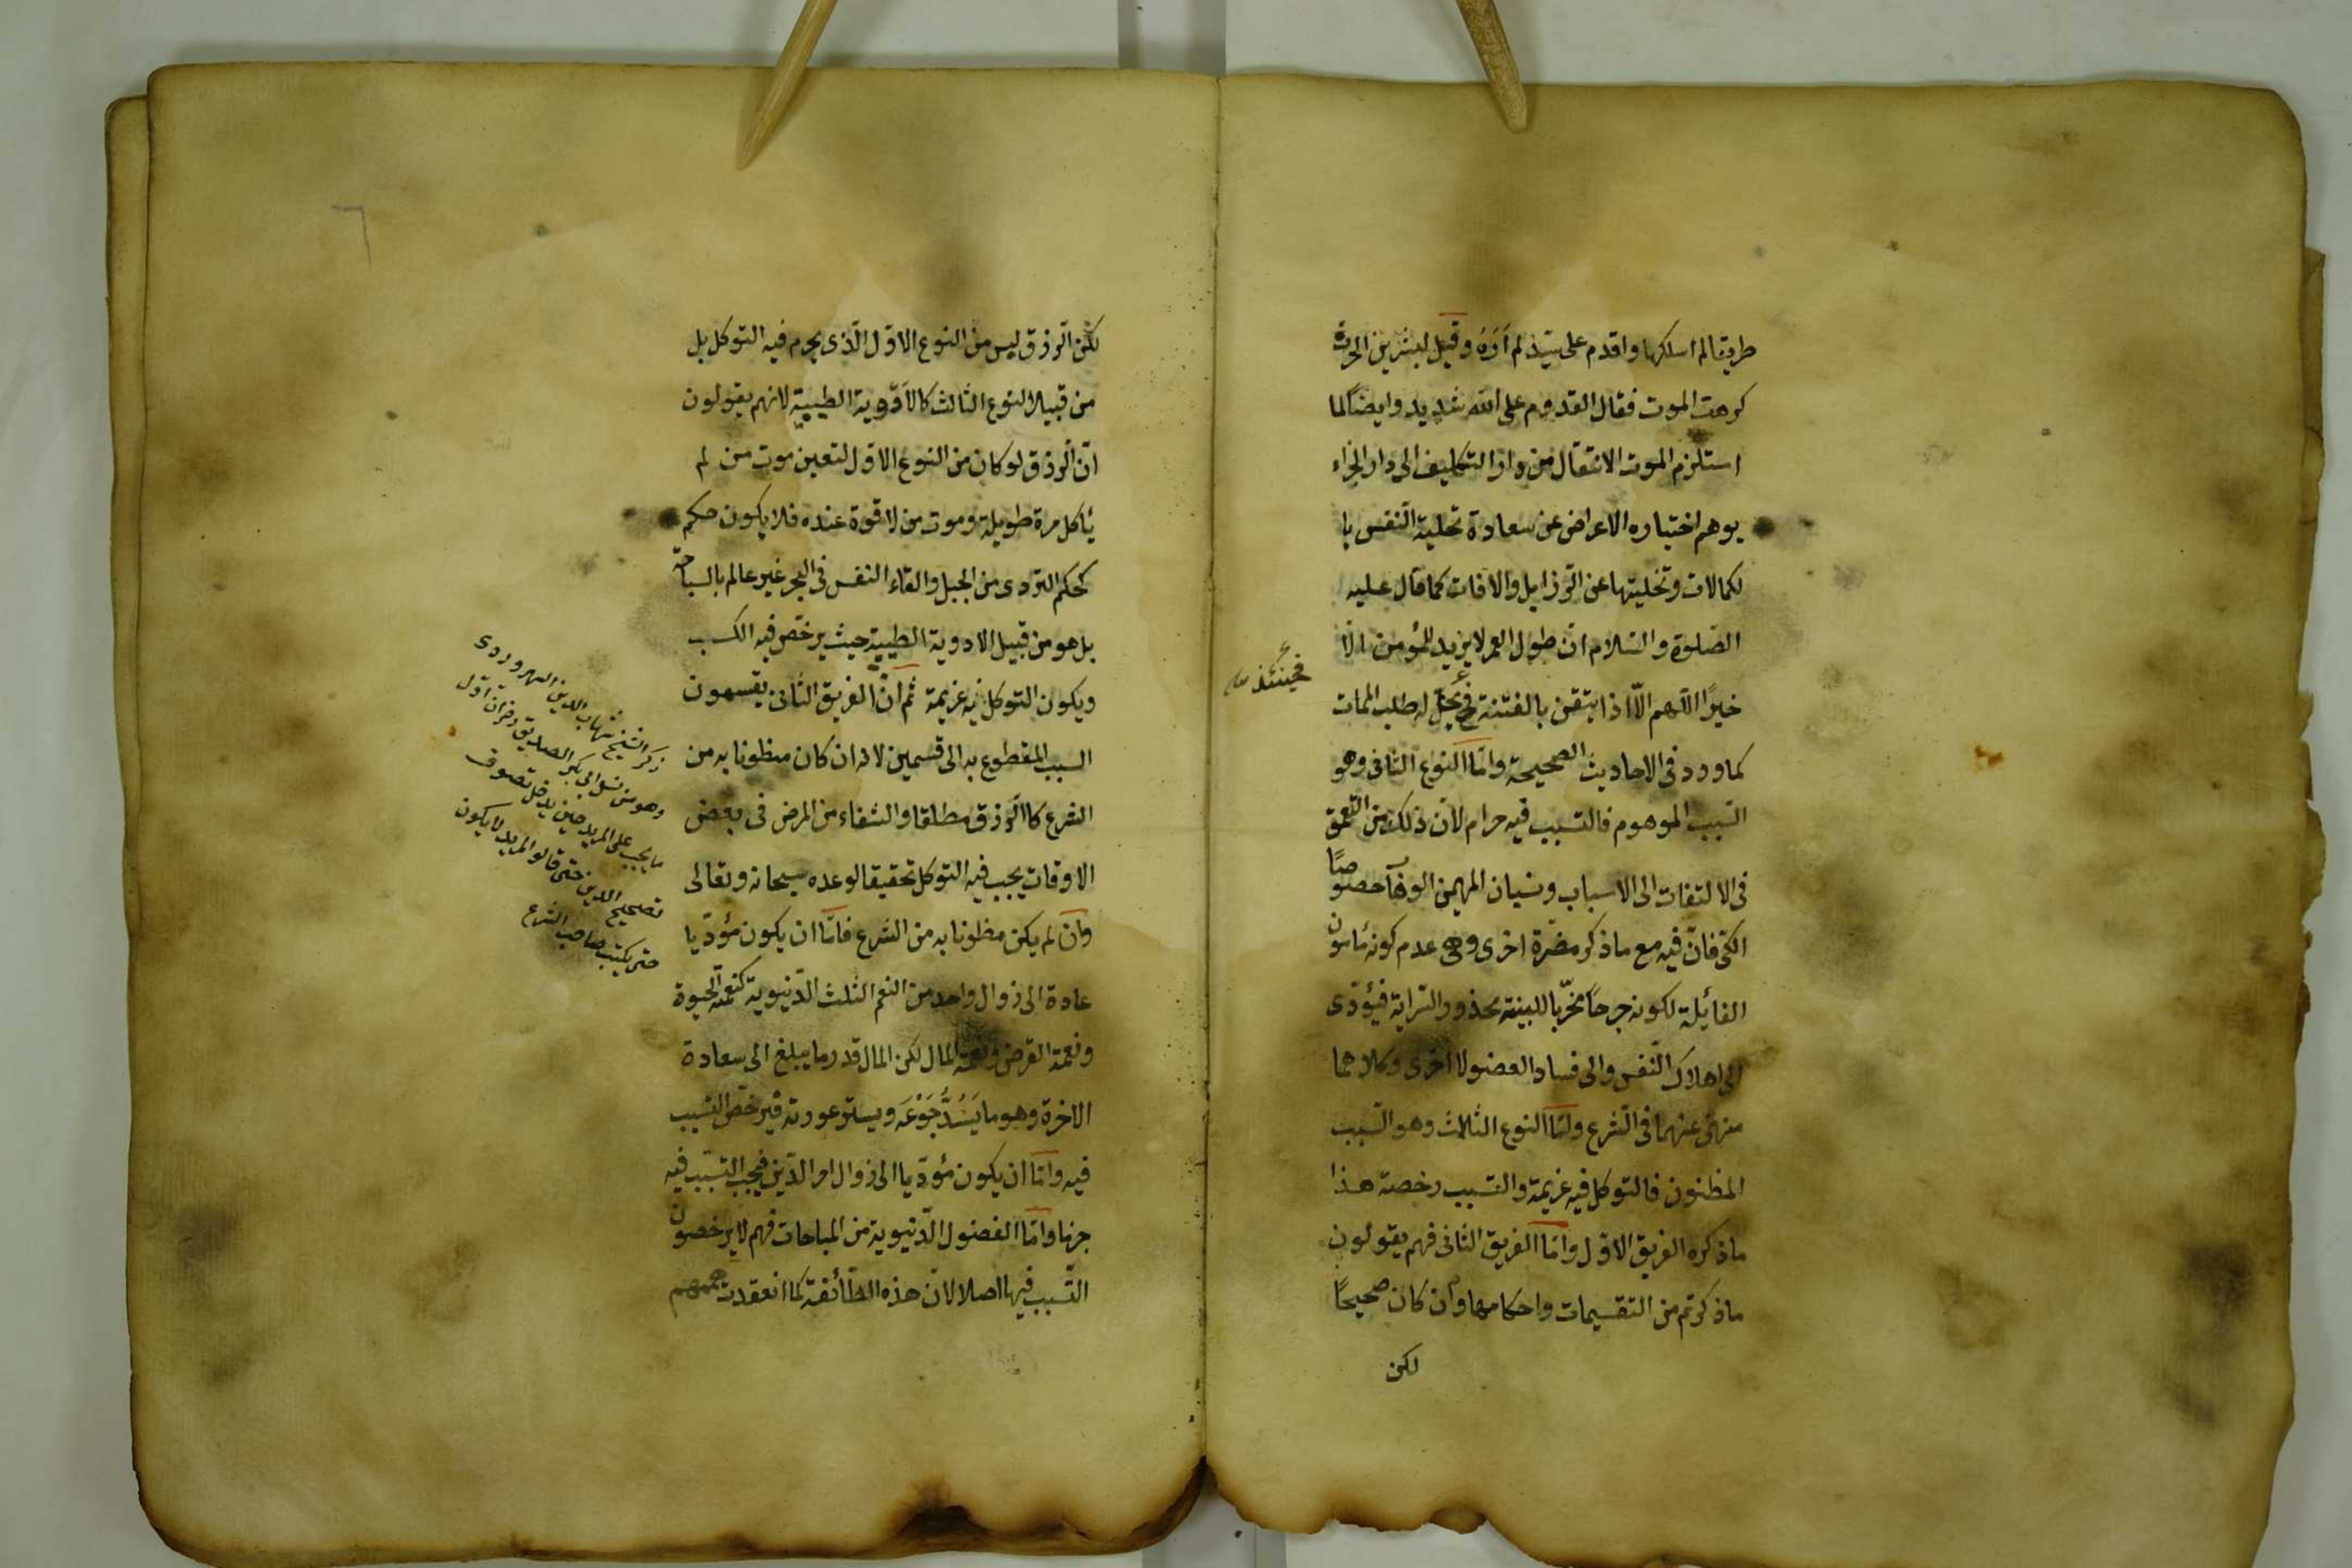 طريقا لم اسلكها واقدم على سيد لم أرَهُ وقيل لبشر بن الحرث
كرهت الموت فقال القدوم على الله شديد وايضًا لما
استلزم الموت الانتقال من دار التكليف الى دار الجزاء
يوهم اختياره الاعراض عن سعادة تحلية النفس با
لكمالات وتخليتها عن الرزايل والافات كما قال عليه
الصّلوة والسّلام انّ طول العمر لا يزيد للمؤمن الّا
خيرًا اللّهم الّا اذا يتقن بالفتنة فح يحلّ له طلب الممات
فحينئذ
كما ورد فى الاحاديث الصحيحة وامّا النوع الثانى وهو
السّبب الموهوم فالتسبيب فيه حرام لانّ ذلك من التعمّق
فى الالتفات الى الاسباب ونسيان المهيمن الوهّاب خصوصًا
الكىّ فانّ فيه مع ما ذكر مضرّة اخرى وهى عدم كونه مأمون
الغائلة لكونه جرحًا مخرّبا للبينة محذور السّراية فيؤدّى
الى اهلاك النّفس والى فساد العضو الاخرى وكلاهما
منهىّ عنهما فى الشّرع وامّا النوع الثلاث وهو السّبب
المظنون فالتوكل فيه عزيمة والتسبيب رخصة هذا
ما ذكره الفريق الاوّل وامّا الفريق الثانى فهم يقولون
ما ذكرتم من التقسيمات واحكامها وان كان صحيحًا
لكن
لكن الرّزق ليس من النوع الاوّل الّذى يحرم فيه التوكل بل
من قبيل النوع الثالث كالادوية الطبيبة لانهم يقولون
انّ الرزق لو كان من النوع الاوّل لتعين موت من لم
يأكل مرة طويلة وموت من لا قوة عنده فلا يكون حكمه
كحكم التردى من الجبل والقاء النفس فى البحر غير عالم بالسباحة
بل هو من قبيل الادوية الطبيبة حيث يرخّص فيه الكسب
ويكون التوكل فيه عزيمة ثم انّ الفريق الثانى يقسمون
السبب المقطوع به الى قسمين لانه ان كان مظنونا به من
الشرع كالرّزق مطلقا والشفاء من المرض فى بعض
الاوقات يجب فيه التوكل تحقيقا لوعده سبحانه وتعالى
وان لم يكن مظنونا به من الشرع فامّا ان يكون مؤدّيا
عادة الى زوال واحد من النعم الثلث الدّنيوية كنعمة الحيوة
ونعمة العرض ونعمة المال لكن المال قدر ما يبلغ الى سعادة
الاخرة وهو ما يَسُدُّ جَوْعَه ويستر عورته فيرخّص التسبب
فيه وامّا ان يكون مؤدّيا الى زوال امر الدّين فيجب التسبّب فيه
جزما وامّا الفضول الدّنيوية من المباحات فهم لا يرخصون
التّسبب فيها اصلا لانّ هذه الطّائفة كما انعقدت هممهم
ذكر الشيخ شهاب الدين السهروردى
وهو من نسل ابى بكر الصديق رض انّ اوّل
ما يجب على المريد حين يدخل تصوف
تصحيح الدين حتى قالوا المريد لا يكون
حتى يكتب صاحب الشرع